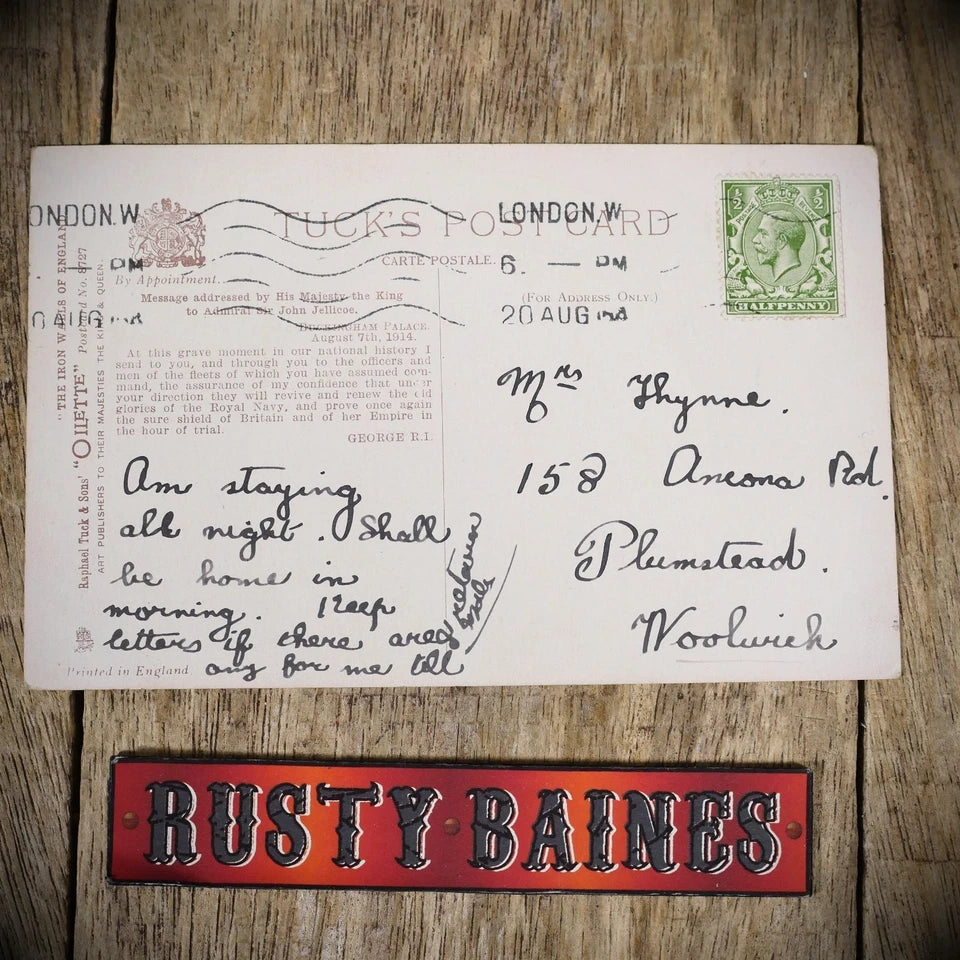 TUCK'S POST CARD
CARTE POSTALE.
By Appointment.
(FOR ADDRESS ONLY.)
LONDON.W
6. — PM
20 AUG
ONDON.W
PM
0 AUG
½ ½
HALFPENNY
Message addressed by His Majesty the King
to Admiral Sir John Jellicoe.
BUCKINGHAM PALACE.
August 7th, 1914.
At this grave moment in our national history I
send to you, and through you to the officers and
men of the fleets of which you have assumed com-
mand, the assurance of my confidence that under
your direction they will revive and renew the old
glories of the Royal Navy, and prove once again
the sure shield of Britain and of her Empire in
the hour of trial.
GEORGE R.I.
"THE IRON WALLS OF ENGLAND
Raphael Tuck & Sons' "OILETTE" Postcard No. 8727
ART PUBLISHERS TO THEIR MAJESTIES THE KING & QUEEN.
Printed in England
Am staying
all night. Shall
be home in
morning. Keep
letters if there are
any for me till
Mrs Thynne.
158 Ancona Rd.
Plumstead.
Woolwich
RUSTY BAINES